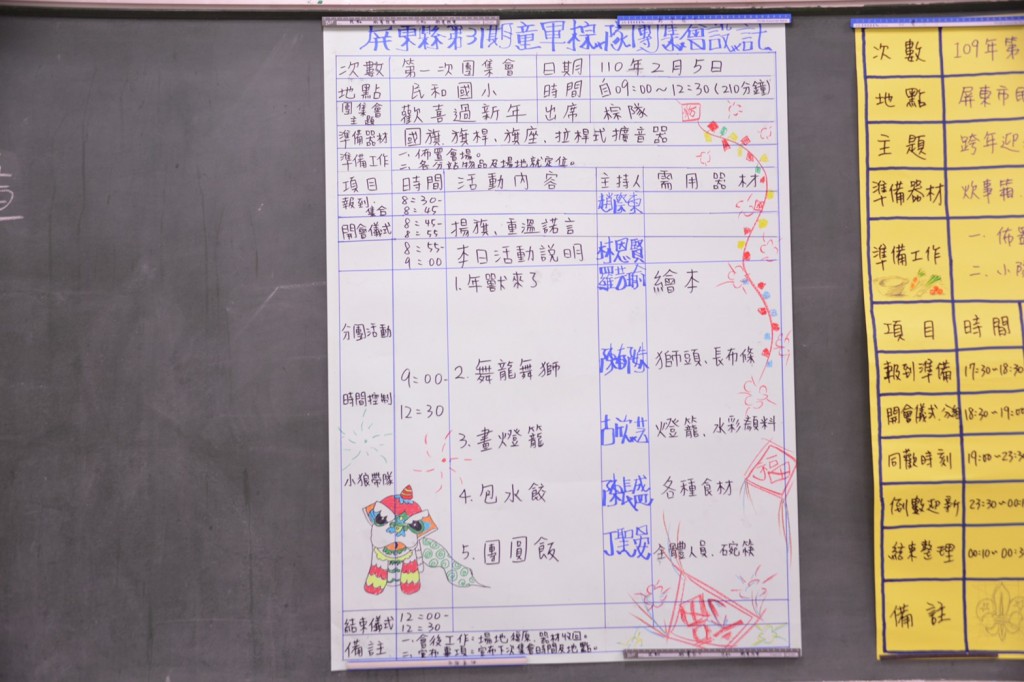 屏東縣第31期童軍棕隊團集會設計
次數 第一次團集會 日期 110年2月5日
地點 民和國小 時間 自09:00~12:30(210分鐘)
團集會主題 歡喜過新年 出席 棕隊
準備器材 國旗、旗桿、旗座、拉桿式擴音器
準備工作 一、佈置會場。
二、各分站物品及場地就定位。
項目 時間 活動內容 主持人 需用器材
報到、集合 8:30-8:45 趙榮東
開會儀式 8:45-8:55 揚旗、重溫諾言
8:55-9:00 本日活動說明 林恩賢
1.年獸來了 繪本
分團活動
9:00- 2.舞龍舞獅 獅頭、長布條
時間控制
12:30
3.畫燈籠 燈籠、水彩顏料
福
小狼帶隊 4.包水餃 陳長盛 各種食材
5.團圓飯 全體人員、碗筷
福
結束儀式 12:00-12:30
備註 一、會後工作:場地整理、器材收回。
二、宣布事項:宣布下次集會時間及地點。
次數 109年第
地點 屏東市民
主題 跨年迎
準備器材 炊事箱、
準備工作 一、佈置
二、小隊
項目 時間
報到準備 17:30~18:30
開會儀式 18:30~19:00
同歡時刻 19:00~23:30
倒數迎新 23:30~00:
結束整理 00:10~00:3
備註